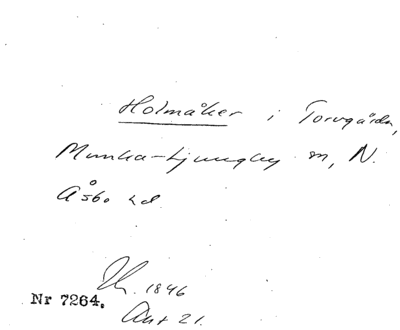 Holmåker i Torvgården,
Munka-Ljungby sn, N.
Åsbo hd
Th. 1846
Nr 7264.
Ant 21.